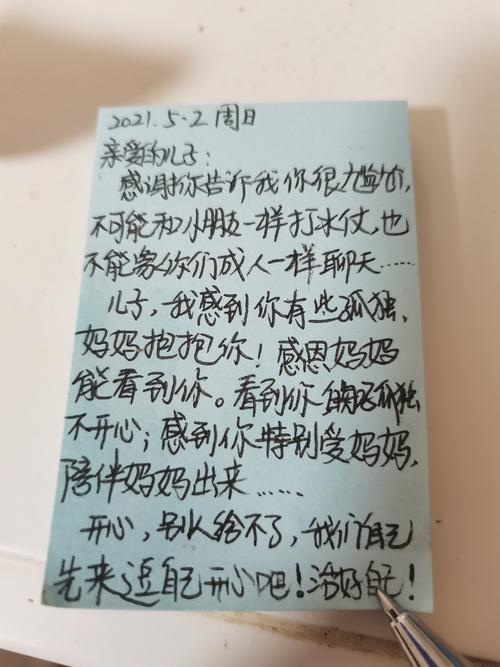 2021.5.2 周日
亲爱的儿子：
感谢你告诉我你很尴尬，
不可能和小朋友一样打水仗，也
不能象你们成人一样聊天……
儿子，我感到你有些孤独，
妈妈抱抱你！感恩妈妈
能看到你。看到你的孤独
不开心；感到你特别爱妈妈，
陪伴妈妈出来……
开心，别人给不了，我们自己
先来逗自己开心吧！活好自己！